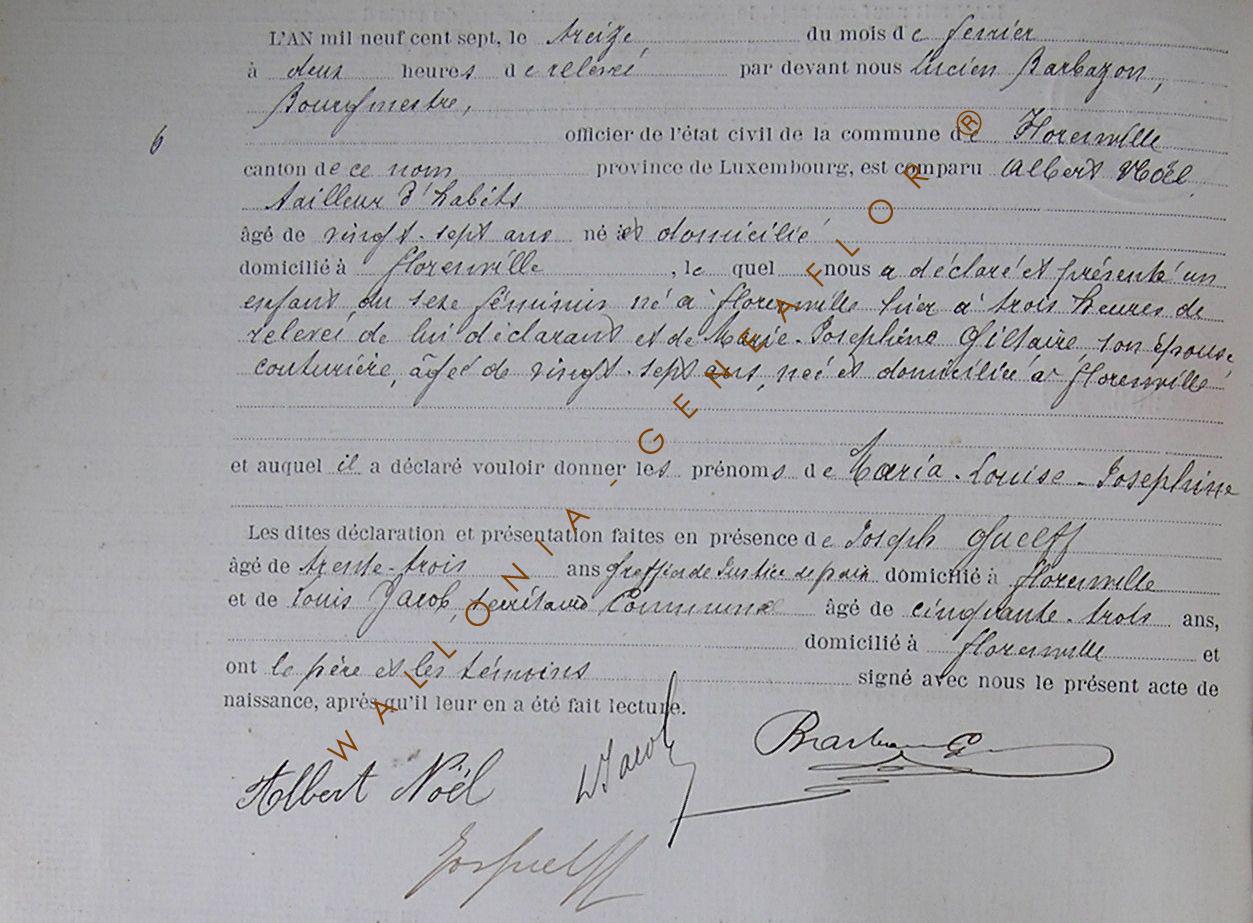 L'AN mil neuf cent sept, le treize du mois de février
à deux heures de relevé par devant nous Lucien Barbazon,
Bourgmestre,
6
officier de l'état civil de la commune de Florenville
canton de ce nom province de Luxembourg, est comparu Albert Noël
tailleur d'habits
âgé de vingt-sept ans né et domicilié
domicilié à Florenville, le quel nous a déclaré et présenté un
enfant du sexe féminin né à Florenville hier à trois heures de
relevé de lui déclarant et de Marie-Josephine Giltaire, son épouse,
couturière, âgée de vingt-sept ans, née et domiciliée à Florenville
et auquel il a déclaré vouloir donner les prénoms de Maria-Louise-Josephine
Les dites déclaration et présentation faites en présence de Joseph Guelff
âgé de trente-trois ans greffier de Justice de paix domicilié à Florenville
et de Louis Jacob, secrétaire Communal âgé de cinquante-trois ans,
domicilié à Florenville et
ont le père et les témoins signé avec nous le présent acte de
naissance, après qu'il leur en a été fait lecture.
Albert Noël L Jacob
Jos Guelff
WALLONIA - GENEAFLOR ®